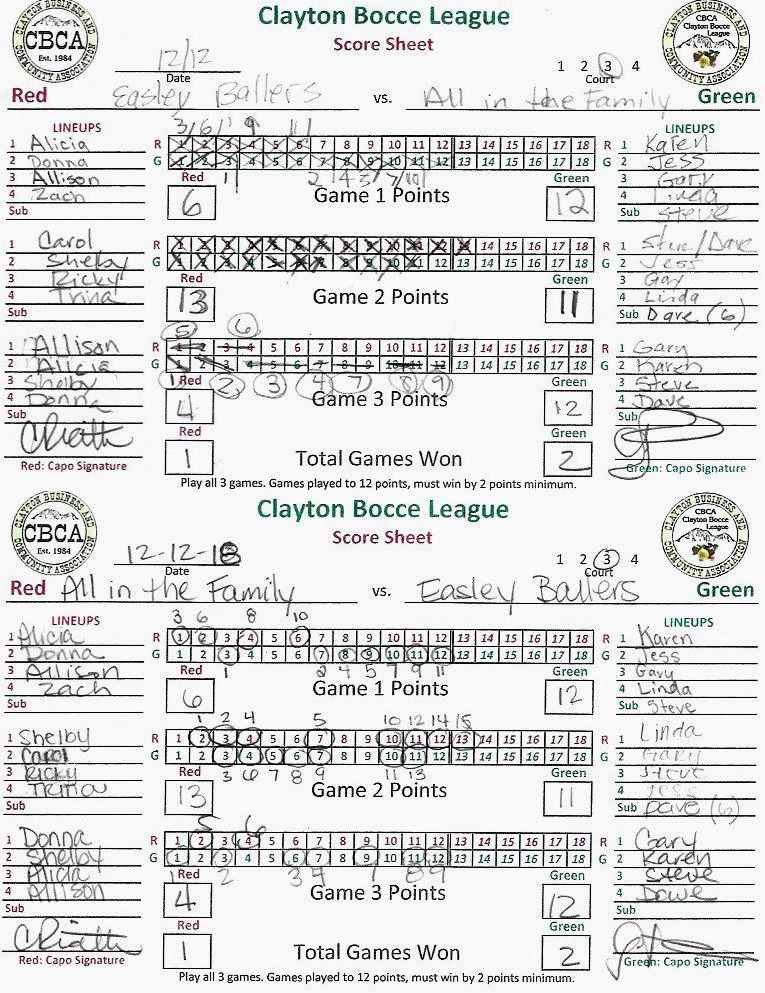 Clayton Bocce League
Score Sheet
CLAYTON BUSINESS AND COMMUNITY ASSOCIATION
CBCA
Est. 1984
CBCA
Clayton Bocce League
12/12
Date
1 2 3 4
Court
Red Easley Ballers vs. All in the Family Green
LINEUPS LINEUPS
1 Alicia R 1 2 3 4 5 6 7 8 9 10 11 12 13 14 15 16 17 18 R 1 Karen
2 Donna G 1 2 3 4 5 6 7 8 9 10 11 12 13 14 15 16 17 18 G 2 Jess
3 Allison Red Green 3 Gary
4 Zach 6 Game 1 Points 12 4 Linda
Sub Sub Steve
1 Carol R 1 2 3 4 5 6 7 8 9 10 11 12 13 14 15 16 17 18 R 1 Steve/Dave
2 Shelby G 1 2 3 4 5 6 7 8 9 10 11 12 13 14 15 16 17 18 G 2 Jess
3 Ricky Red Green 3 Gay
4 Trina 13 Game 2 Points 11 4 Linda
Sub Sub Dave (6)
5 6
1 Allison R 1 2 3 4 5 6 7 8 9 10 11 12 13 14 15 16 17 18 R 1 Gary
2 Alicia G 1 2 3 4 5 6 7 8 9 10 11 12 13 14 15 16 17 18 G 2 Karen
3 Shelby 1 Red 2 3 4 7 8 9 Green 3 Steve
4 Donna 4 Game 3 Points 12 4 Dave
Sub Sub
Red Green
1 Total Games Won 2
Red: Capo Signature Green: Capo Signature
Play all 3 games. Games played to 12 points, must win by 2 points minimum.
Clayton Bocce League
Score Sheet
CLAYTON BUSINESS AND COMMUNITY ASSOCIATION
CBCA
Est. 1984
CBCA
Clayton Bocce League
12-12-18
Date
1 2 3 4
Court
Red All in the Family vs. Easley Ballers Green
LINEUPS LINEUPS
3 6 8 10
1 Alicia R 1 2 3 4 5 6 7 8 9 10 11 12 13 14 15 16 17 18 R 1 Karen
2 Donna G 1 2 3 4 5 6 7 8 9 10 11 12 13 14 15 16 17 18 G 2 Jess
3 Allison Red 1 2 4 5 7 9 11 Green 3 Gary
4 Zach 6 Game 1 Points 12 4 Linda
Sub Sub Steve
1 2 4 5 10 12 14 15
1 Shelby R 1 2 3 4 5 6 7 8 9 10 11 12 13 14 15 16 17 18 R 1 Linda
2 Carol G 1 2 3 4 5 6 7 8 9 10 11 12 13 14 15 16 17 18 G 2 Gary
3 Ricky Red 3 6 7 8 9 11 13 Green 3 Steve
4 13 Game 2 Points 11 4 Jess
Sub Sub Dave (6)
5 6
1 Donna R 1 2 3 4 5 6 7 8 9 10 11 12 13 14 15 16 17 18 R 1 Gary
2 Shelby G 1 2 3 4 5 6 7 8 9 10 11 12 13 14 15 16 17 18 G 2 Karen
3 Alicia 1 Red 2 3 4 7 8 9 Green 3 Steve
4 Allison 4 Game 3 Points 12 4 Dave
Sub Sub
Red Green
1 Total Games Won 2
Red: Capo Signature Green: Capo Signature
Play all 3 games. Games played to 12 points, must win by 2 points minimum.